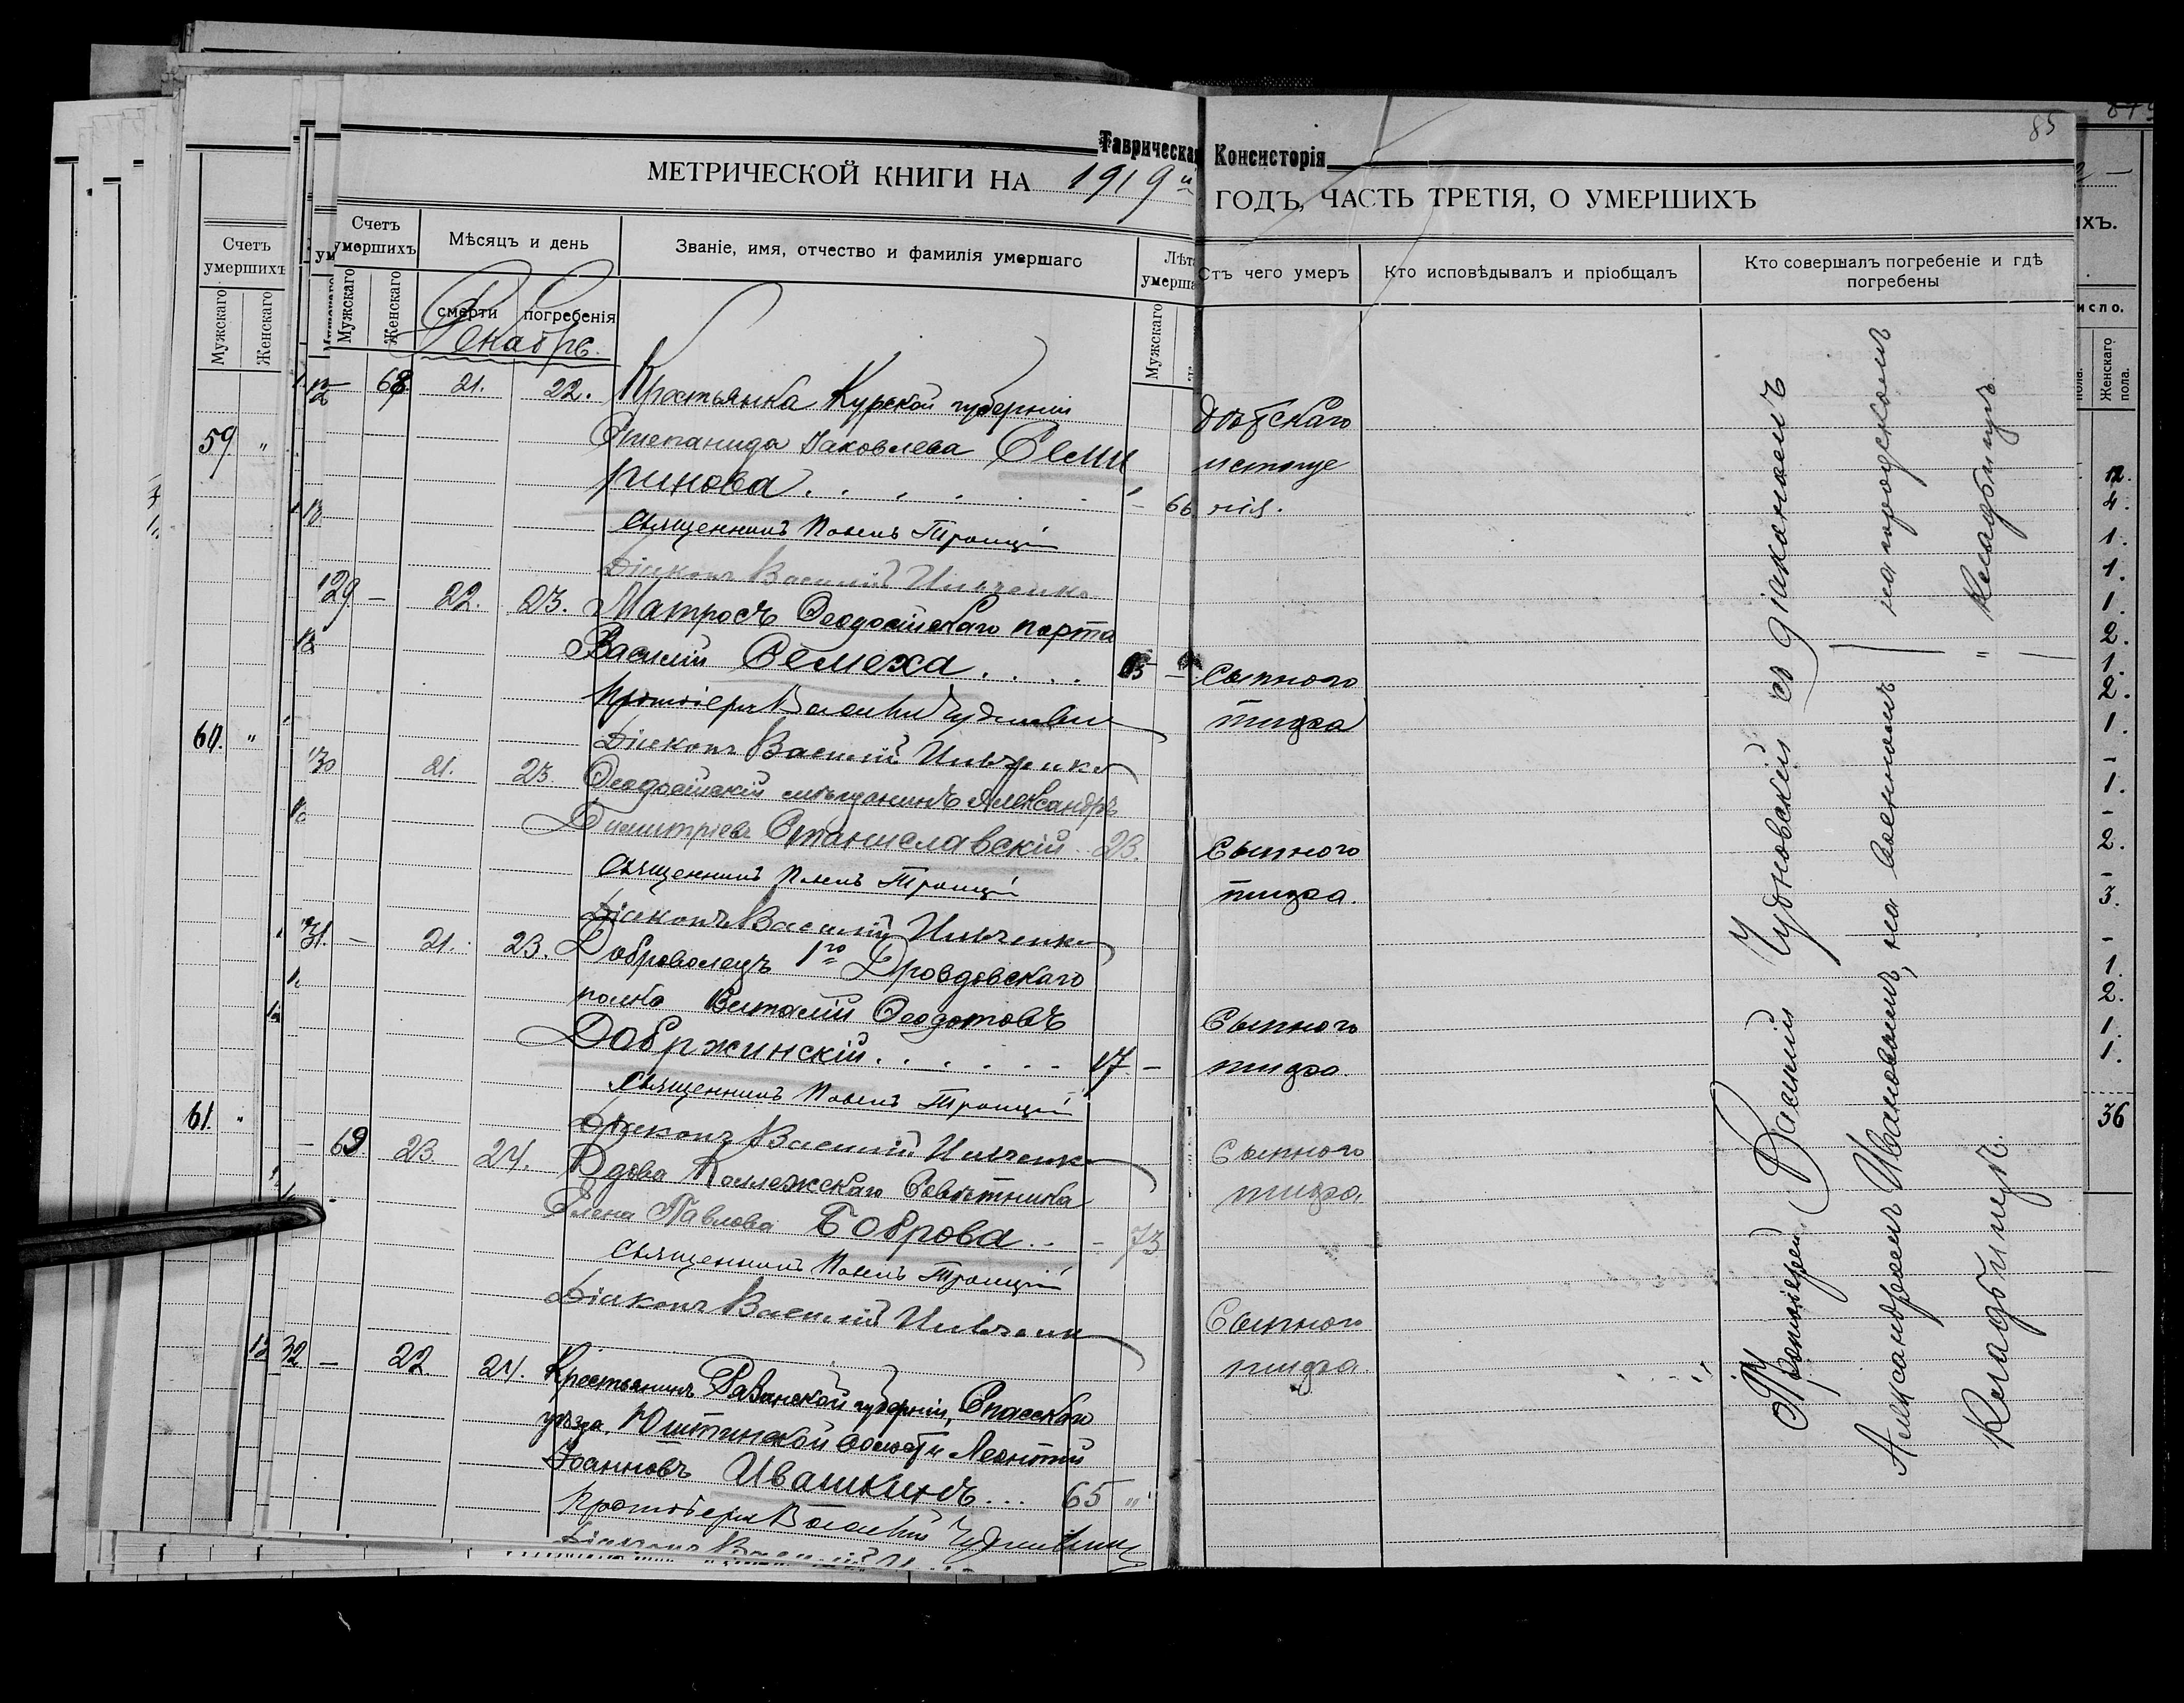 85
Таврическая Консисторія
МЕТРИЧЕСКОЙ КНИГИ НА 1919 й ГОДЪ, ЧАСТЬ ТРЕТІЯ, О УМЕРШИХЪ
Счетъ умершихъ
Мужскаго
Женскаго
Счетъ умершихъ
Мужскаго
Женскаго
Мѣсяцъ и день
смерти
погребенія
Званіе, имя, отчество и фамилія умершаго
Лѣта умерша
Мужскаго
Отъ чего умеръ
Кто исповѣдывалъ и пріобщалъ
Кто совершалъ погребеніе и гдѣ погребены
Декабрь.
68 21. 22. Крестьянка Курской губерніи
Степанида Іаковлева Семи
ринова 66.
истоще
нія.
Священникъ Павелъ Троицкій
Діаконъ Василій Ильченко
129. — 22. 23. Матросъ Ѳеодосійскаго порта
Василій Семеха
Сыпного
тифа
Діаконъ Василій Ильченко
130 21. 23. Ѳеодосійскій мѣщанинъ Александръ
Димитріевъ Станиславскій 23.
Сыпного
тифа.
Священникъ Павелъ Троицкій
Діаконъ Василій Ильченко
131. — 21. 23. Доброволецъ 1го Дроздовскаго
полка Виталій Ѳеодотовъ
Добржинскій 17. —
Сыпного
тифа.
Священникъ Павелъ Троицкій
Діаконъ Василій Ильченко
— 69. 23. 24. Вдова Коллежскаго Совѣтника
Елена Павлова Боброва - 73
Сыпного
тифа.
Священникъ Павелъ Троицкій
Діаконъ Василій Ильченко
132 — 22 24. Крестьянинъ Рязанской губерніи, Спасскаго
уѣзда, волости Леонтій
Іоанновъ Ивашкинъ... 65 "
Сыпного
тифа.
Протоіерей Василій
Діаконъ Василій
Протоіерей Василій Чудновскій съ діакономъ
Александромъ Ивановымъ, на военномъ
Кладбищѣ.
на городскомъ
" Кладбищѣ.
59. "
60. "
61. "
36